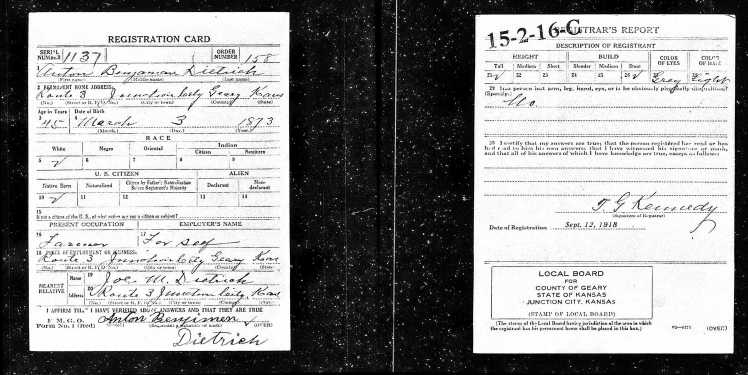 REGISTRATION CARD
SERIAL NUMBER 1137 ORDER NUMBER 158
Anton Benjaman Dietrich
(First name) (Middle name) (Last name)
2 PERMANENT HOME ADDRESS:
Route 3 Junction City Geary Kans
(No.) (Street or R.F.D. No.) (City or town) (County) (State)
Age in Years Date of Birth
3 45 4 March 3 1873
(Month.) (Day.) (Year.)
RACE
White Negro Oriental Indian
Citizen Noncitizen
5 ✓ 6 7 8 9
U. S. CITIZEN ALIEN
Native Born Naturalized Citizen by Father's Naturalization Before Registrant's Majority Declarant Non-declarant
10 ✓ 11 12 13 14
15
If not a citizen of the U. S., of what nation are you a citizen or subject?
PRESENT OCCUPATION EMPLOYER'S NAME
16 Farmer 17 For self
18 PLACE OF EMPLOYMENT OR BUSINESS:
Route 3 Junction City Geary Kans
(No.) (Street or R.F.D. No.) (City or town) (County) (State)
NEAREST RELATIVE Name 19 Joe M. Dietrich
Address 20 Route 3 Junction City, Kans
(No.) (Street or R.F.D. No.) (City or town) (County) (State)
I AFFIRM THAT I HAVE VERIFIED ABOVE ANSWERS AND THAT THEY ARE TRUE
P. M. G. O.
Form No. 1 (Red) Anton Benjimen
(Registrant's signature or mark) (OVER)
Dietrich
15-2-16-C REGISTRAR'S REPORT
DESCRIPTION OF REGISTRANT
HEIGHT BUILD COLOR OF EYES COLOR OF HAIR
Tall Medium Short Slender Medium Stout
21 ✓ 22 23 24 25 26 ✓ 27 Grey 28 Light
29 Has person lost arm, leg, hand, eye, or is he obviously physically disqualified?
(Specify.)
No.
30 I certify that my answers are true; that the person registered has read or has
had read to him his own answers; that I have witnessed his signature or mark,
and that all of his answers of which I have knowledge are true, except as follows:
T. G. Kennedy
(Signature of Registrar)
Date of Registration Sept. 12, 1918
LOCAL BOARD
FOR
COUNTY OF GEARY
STATE OF KANSAS
JUNCTION CITY, KANSAS
(STAMP OF LOCAL BOARD)
(The stamp of the Local Board having jurisdiction of the area in which
the registrant has his permanent home shall be placed in this box.)
(OVER)